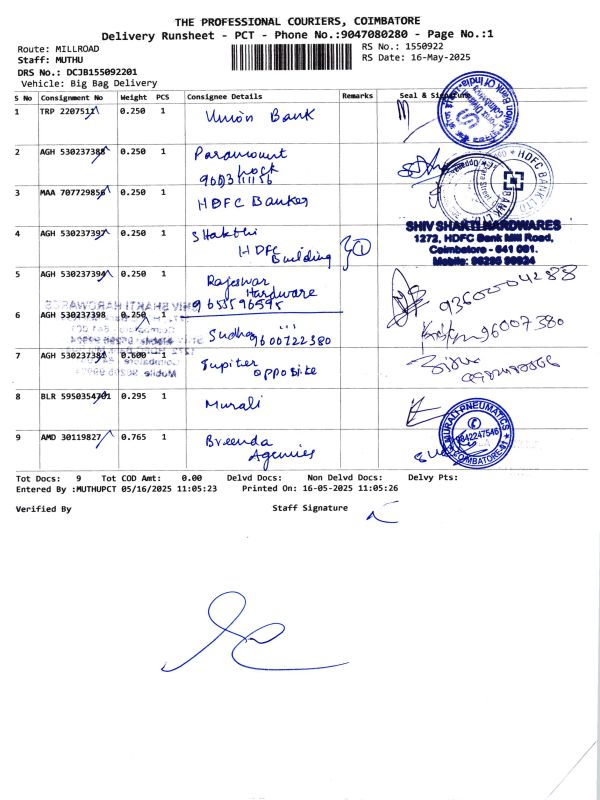 THE PROFESSIONAL COURIERS, COIMBATORE
Delivery Runsheet - PCT - Phone No.:9047080280 - Page No.:1
Route: MILLROAD
RS No.: 1550922
Staff: MUTHU
RS Date: 16-May-2025
DRS No.: DCJB155092201
Vehicle: Big Bag Delivery
S No Consignment No Weight PCS Consignee Details Remarks Seal & Signature
1 TRP 2207511 0.250 1 Union Bank
2 AGH 530237388 0.250 1 Paramount
3 MAA 707729856 0.250 1 HDFC Bankes
4 AGH 530237397 0.250 1 Shakthi
HDFC
Building
1
SHIV SHAKTI HARDWARES
1272, HDFC Bank Mill Road,
Coimbatore - 641 001.
Mobile: 98295 99924
5 AGH 530237394 0.250 1 Rajeswar
Hardware
9655596595
6 AGH 530237398 0.250 1 Sudha 9600722380
96007380
7 AGH 530237384 0.600 1 Jupiter
opposite
8 BLR 5950354701 0.295 1 Murali
MURALI PNEUMATICS
9842247546
COIMBATORE
9 AMD 30119827 0.765 1 Breenda
Agencies
Tot Docs: 9 Tot COD Amt: 0.00 Delvd Docs: Non Delvd Docs: Delvy Pts:
Entered By :MUTHUPCT 05/16/2025 11:05:23 Printed On: 16-05-2025 11:05:26
Verified By Staff Signature